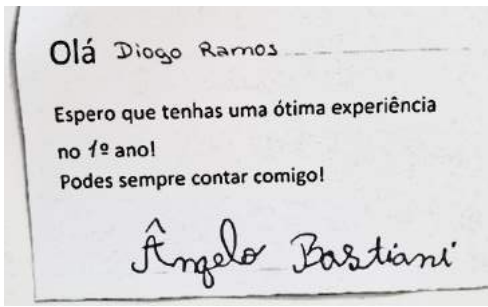 Olá Diogo Ramos
Espero que tenhas uma ótima experiência
no 1º ano!
Podes sempre contar comigo!
Ângelo Bastiani